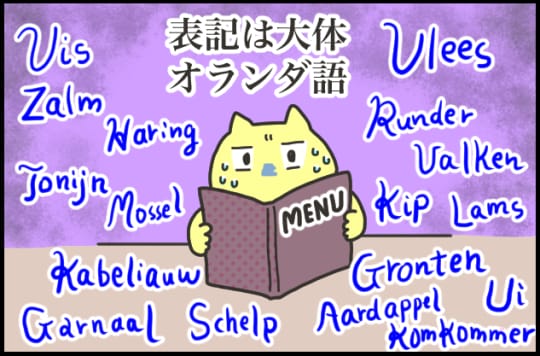 表記は大体
オランダ語
Vis
Zalm
Haring
Tonijn
Mossel
Kabeliauw
Garnaal
Schelp
MENU
Vlees
Runder
Valken
Kip
Lams
Gronten
Aardappel
Ui
Komkommer